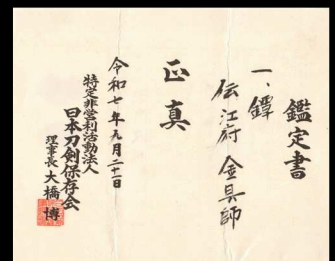 鑑定書
一、鐔
伝 江府 金具師
正真
令和七年九月二十一日
特定非営利活動法人
日本刀剣保存会
理事長 大橋 博